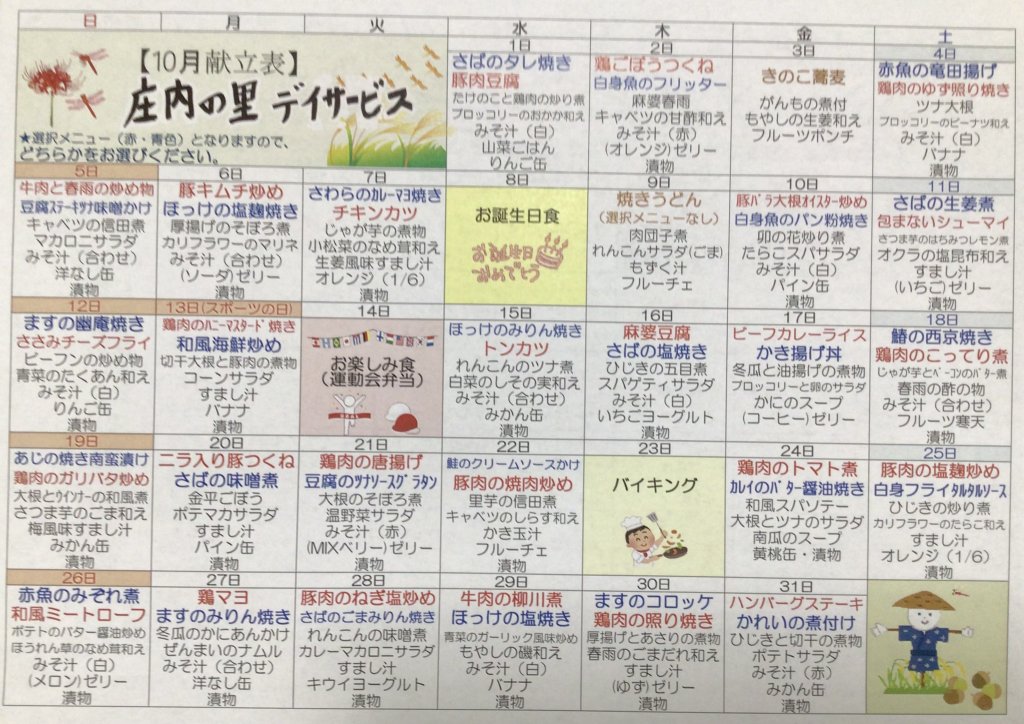 日 月 火 水 木 金 土
【10月献立表】
庄内の里 デイサービス
★選択メニュー（赤・青色）となりますので、
どちらかをお選びください。
1日
さばのタレ焼き
豚肉豆腐
たけのこと鶏肉の炒り煮
ブロッコリーのおかか和え
みそ汁（白）
山菜ごはん
りんご缶
2日
鶏ごぼうつくね
白身魚のフリッター
麻婆春雨
キャベツの甘酢和え
みそ汁（赤）
(オレンジ)ゼリー
漬物
3日
きのこ蕎麦
がんもの煮付
もやしの生姜和え
フルーツポンチ
4日
赤魚の竜田揚げ
鶏肉のゆず照り焼き
ツナ大根
ブロッコリーのピーナツ和え
みそ汁（白）
バナナ
漬物
5日
牛肉と春雨の炒め物
豆腐ｽﾃｰｷﾂﾅ味噌かけ
キャベツの信田煮
マカロニサラダ
みそ汁（合わせ）
洋なし缶
漬物
6日
豚キムチ炒め
ほっけの塩麹焼き
厚揚げのそぼろ煮
カリフラワーのマリネ
みそ汁（合わせ）
(ソーダ)ゼリー
漬物
7日
さわらのｶﾚｰﾏﾖ焼き
チキンカツ
じゃが芋の煮物
小松菜のなめ茸和え
生姜風味すまし汁
オレンジ（1/6）
漬物
8日
お誕生日食
お誕生日
おめでとう
9日
焼きうどん
（選択メニューなし）
肉団子煮
れんこんサラダ(ごま)
もずく汁
フルーチェ
10日
豚ﾊﾞﾗ大根ｵｲｽﾀｰ炒め
白身魚のパン粉焼き
卯の花炒り煮
たらこスパサラダ
みそ汁（白）
パイン缶
漬物
11日
さばの生姜煮
包まないシューマイ
さつま芋のはちみつレモン煮
オクラの塩昆布和え
すまし汁
(いちご)ゼリー
漬物
12日
ますの幽庵焼き
ささみチーズフライ
ビーフンの炒め物
青菜のたくあん和え
みそ汁（白）
りんご缶
漬物
13日(スポーツの日)
鶏肉のﾊﾆｰﾏｽﾀｰﾄﾞ焼き
和風海鮮炒め
切干大根と豚肉の煮物
コーンサラダ
すまし汁
バナナ
漬物
14日
お楽しみ食
（運動会弁当）
15日
ほっけのみりん焼き
トンカツ
れんこんのツナ煮
白菜のしその実和え
みそ汁（合わせ）
みかん缶
漬物
16日
麻婆豆腐
さばの塩焼き
ひじきの五目煮
スパゲティサラダ
みそ汁（白）
いちごヨーグルト
漬物
17日
ビーフカレーライス
かき揚げ丼
冬瓜と油揚げの煮物
ブロッコリーと卵のサラダ
かにのスープ
(コーヒー)ゼリー
18日
鰆の西京焼き
鶏肉のこってり煮
じゃが芋とﾍﾞｰｺﾝのﾊﾞﾀｰ煮
春雨の酢の物
みそ汁（合わせ）
フルーツ寒天
漬物
19日
あじの焼き南蛮漬け
鶏肉のガリバタ炒め
大根とｳｲﾝﾅｰの和風煮
さつま芋のごま和え
梅風味すまし汁
みかん缶
漬物
20日
ニラ入り豚つくね
さばの味噌煮
金平ごぼう
ポテマカサラダ
すまし汁
パイン缶
漬物
21日
鶏肉の唐揚げ
豆腐のﾂﾅｿｰｽｸﾞﾗﾀﾝ
大根のそぼろ煮
温野菜サラダ
みそ汁（赤）
(MIXベリー)ゼリー
漬物
22日
鮭のクリームソースかけ
豚肉の焼肉炒め
里芋の信田煮
キャベツのしらす和え
かき玉汁
フルーチェ
漬物
23日
バイキング
24日
鶏肉のトマト煮
ｶﾚｲのﾊﾞﾀｰ醤油焼き
和風スパソテー
大根とツナのサラダ
南瓜のスープ
黄桃缶・漬物
25日
豚肉の塩麹炒め
白身フライﾀﾙﾀﾙｿｰｽ
ひじきの炒り煮
カリフラワーのたらこ和え
すまし汁
オレンジ（1/6）
漬物
26日
赤魚のみぞれ煮
和風ミートローフ
ポテトのバター醤油炒め
ほうれん草のなめ茸和え
みそ汁（白）
(メロン)ゼリー
漬物
27日
鶏マヨ
ますのみりん焼き
冬瓜のかにあんかけ
ぜんまいのナムル
みそ汁（合わせ）
洋なし缶
漬物
28日
豚肉のねぎ塩炒め
さばのごまみりん焼き
れんこんの味噌煮
カレーマカロニサラダ
すまし汁
キウイヨーグルト
漬物
29日
牛肉の柳川煮
ほっけの塩焼き
青菜のガーリック風味炒め
もやしの磯和え
みそ汁（白）
バナナ
漬物
30日
ますのコロッケ
鶏肉の照り焼き
厚揚げとあさりの煮物
春雨のごまだれ和え
すまし汁
(ゆず)ゼリー
漬物
31日
ハンバーグステーキ
かれいの煮付け
ひじきと切干の煮物
ポテトサラダ
みそ汁（赤）
みかん缶
漬物